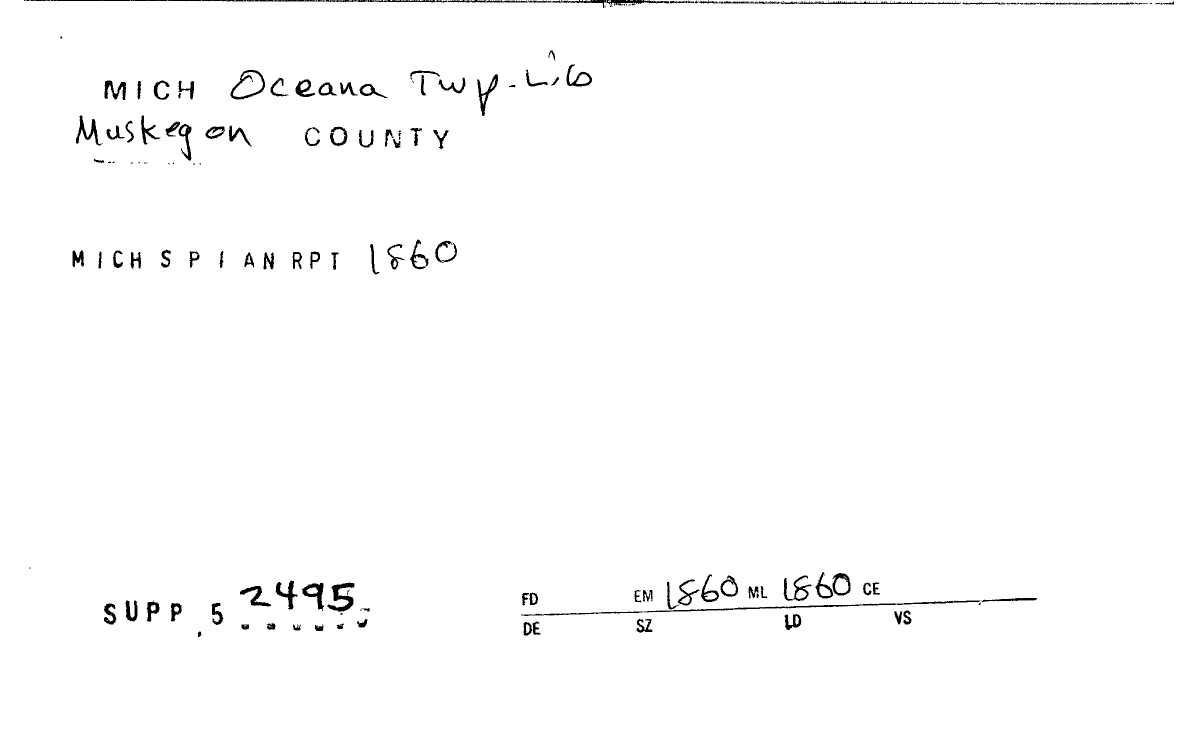 MICH Oceana Twp. Lib
Muskegon COUNTY
MICH S P I AN RPT 1860
SUPP 5 2495
FD EM 1860 ML 1860 CE
DE SZ LD VS